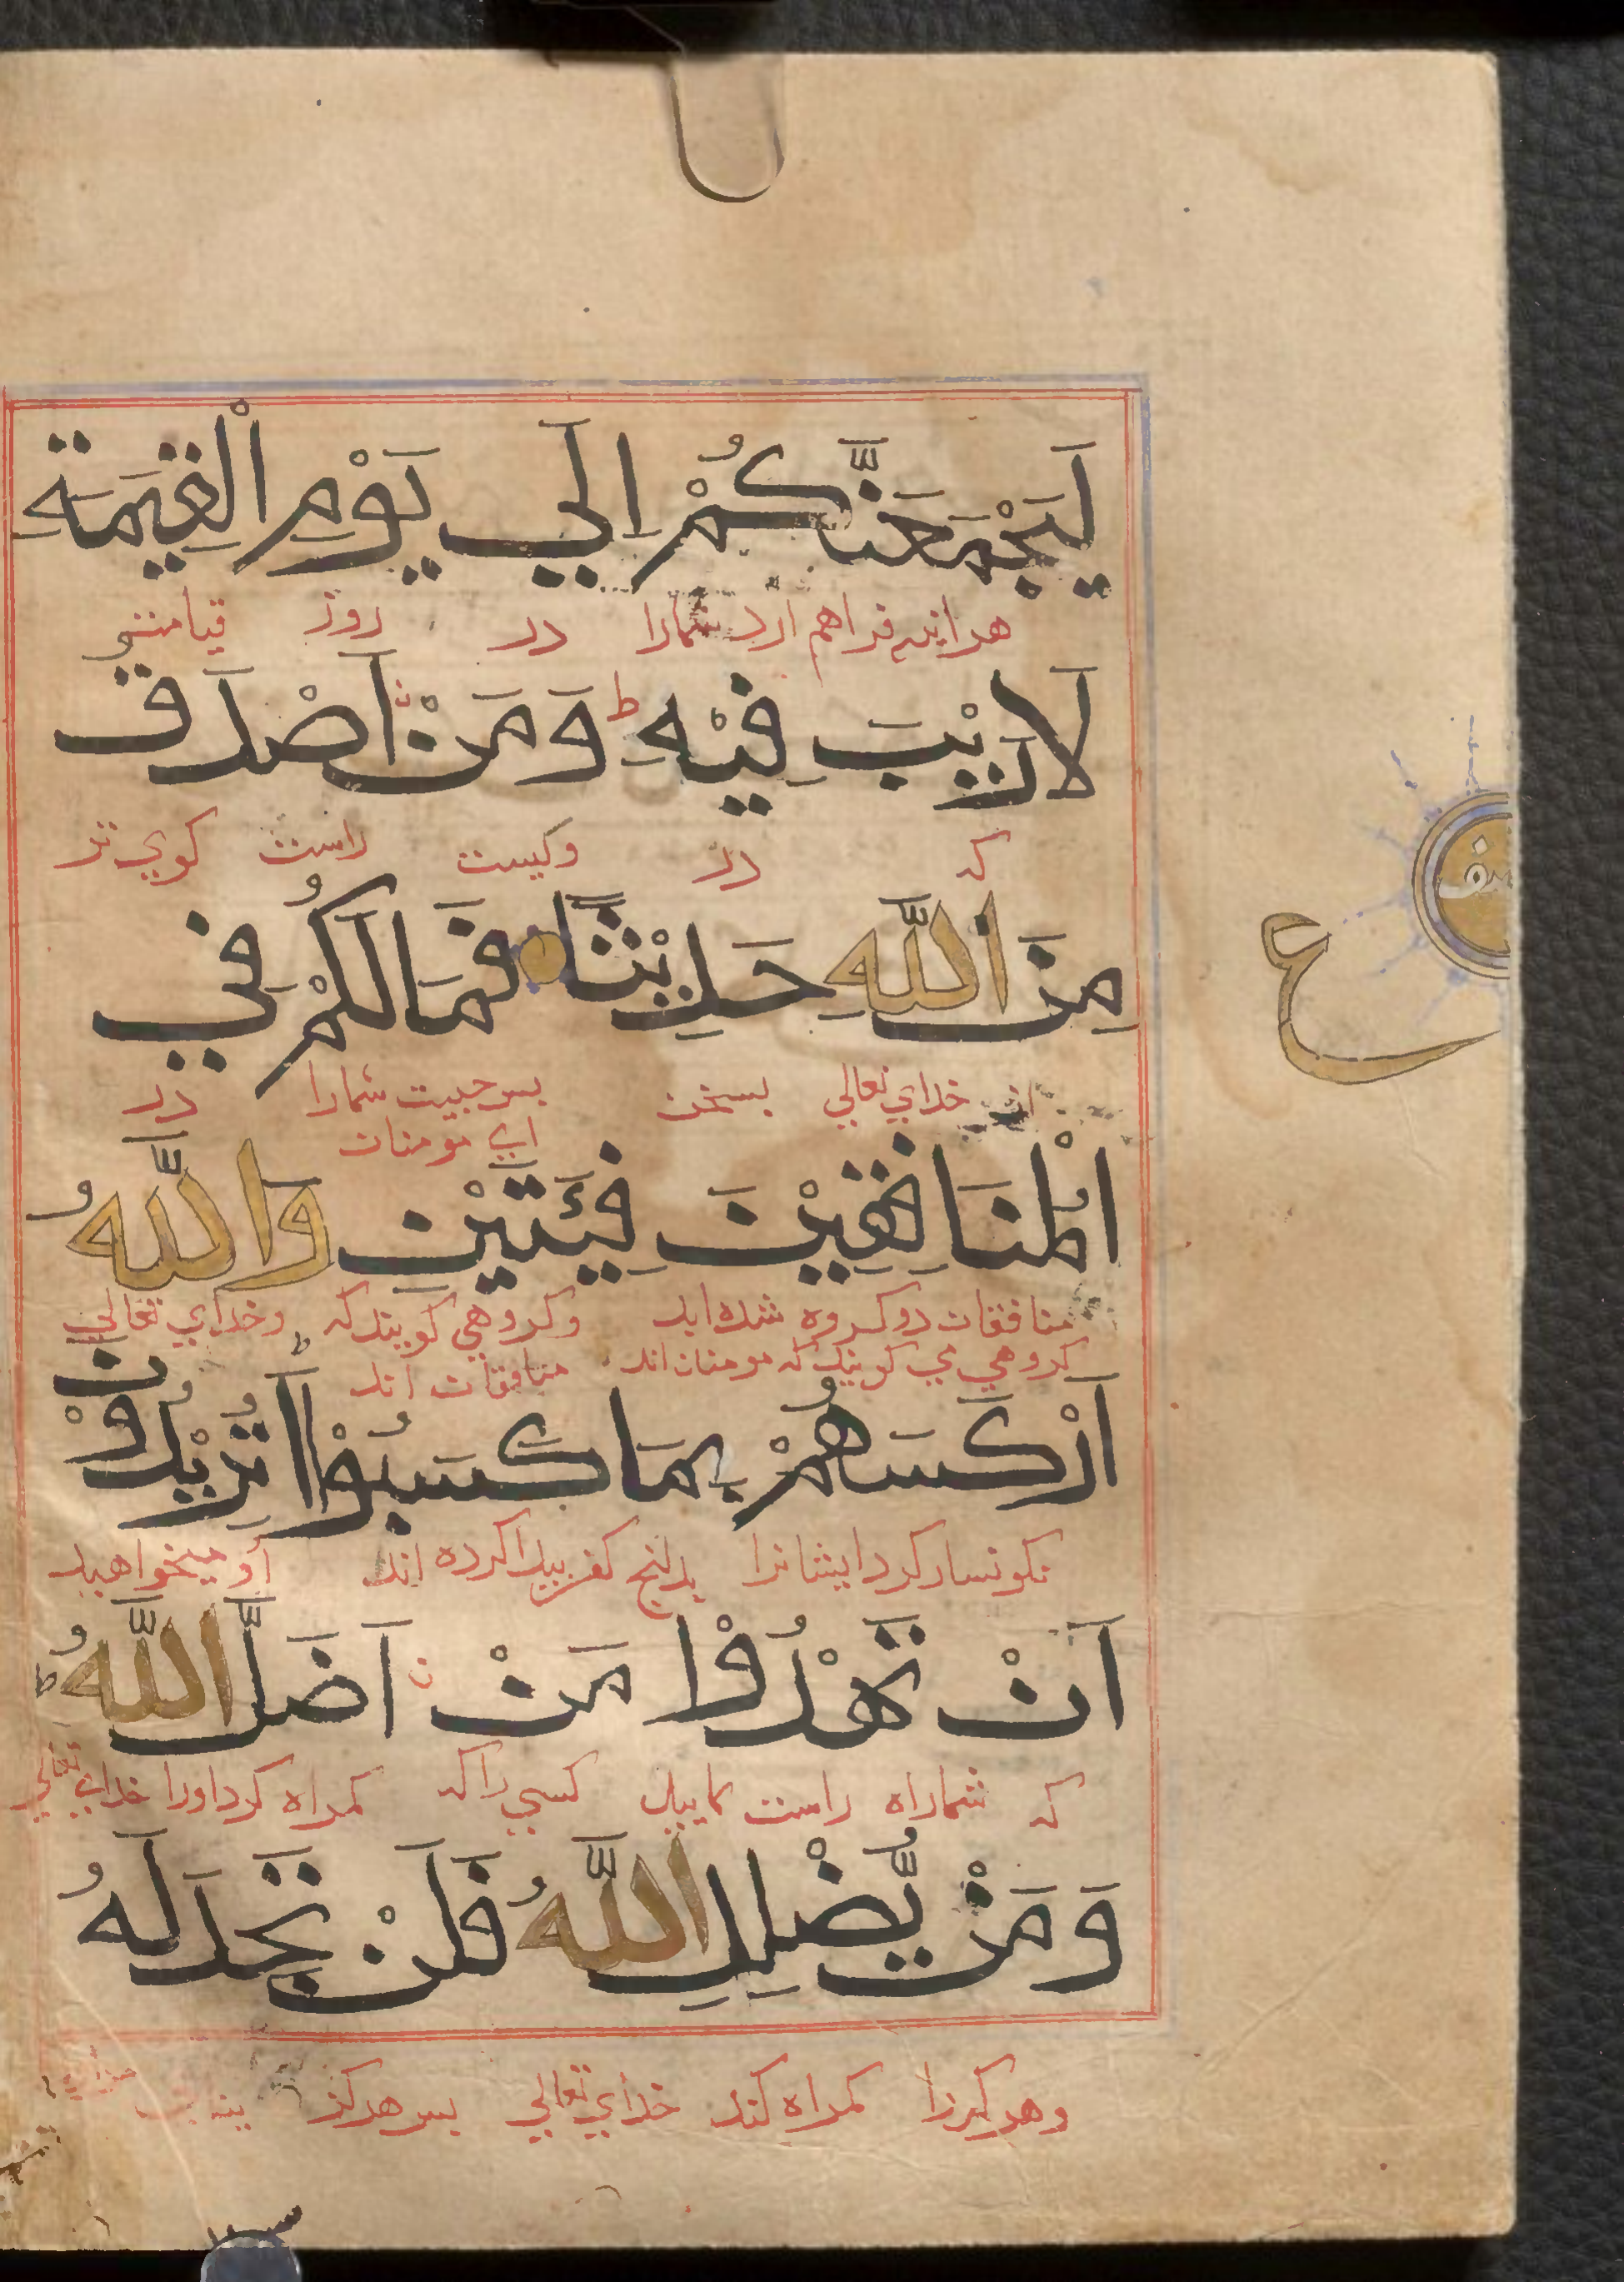 لَيَجْمَعَنَّكُمْ اِلَي يَوْمِ الْقِيٰمَةِ
هراینه فراهم ارد شمارا در روز قیامت
لَارَيْبَ فِيْهِ ط وَمَنْ اَصْدَقُ
که در وکیست راست کوی تر
مِنَ اللّٰهِ حَدِيْثًا فَمَا لَكُمْ فِي
نصف
ع
از خدای تعالی بسخن بس جیست شمارا در
ای مومنان
الْمُنَافِقِيْنَ فِئَتَيْنِ وَاللّٰهُ
منافقان دو کروه شده اید وکروهی کویند که وخدای تعالی
کروهی می کویند که مومنان اند منافقان اند
اَرْكَسَهُمْ بِمَا كَسَبُوْا ط اَتُرِيْدُوْنَ
نکونسار کرد ایشانرا بدانج کفر بیدا کرده اند أو میخواهید
اَنْ تَهْدُوْا مَنْ اَضَلَّ اللّٰهُ ط
که شما راه راست نمایید کسی را که کمراه کرد اورا خدای تعالی
وَمَنْ يُّضْلِلِ اللّٰهُ فَلَنْ تَجِدَ لَهُ
وهر کرا کمراه کند خدای تعالی بس هرکز